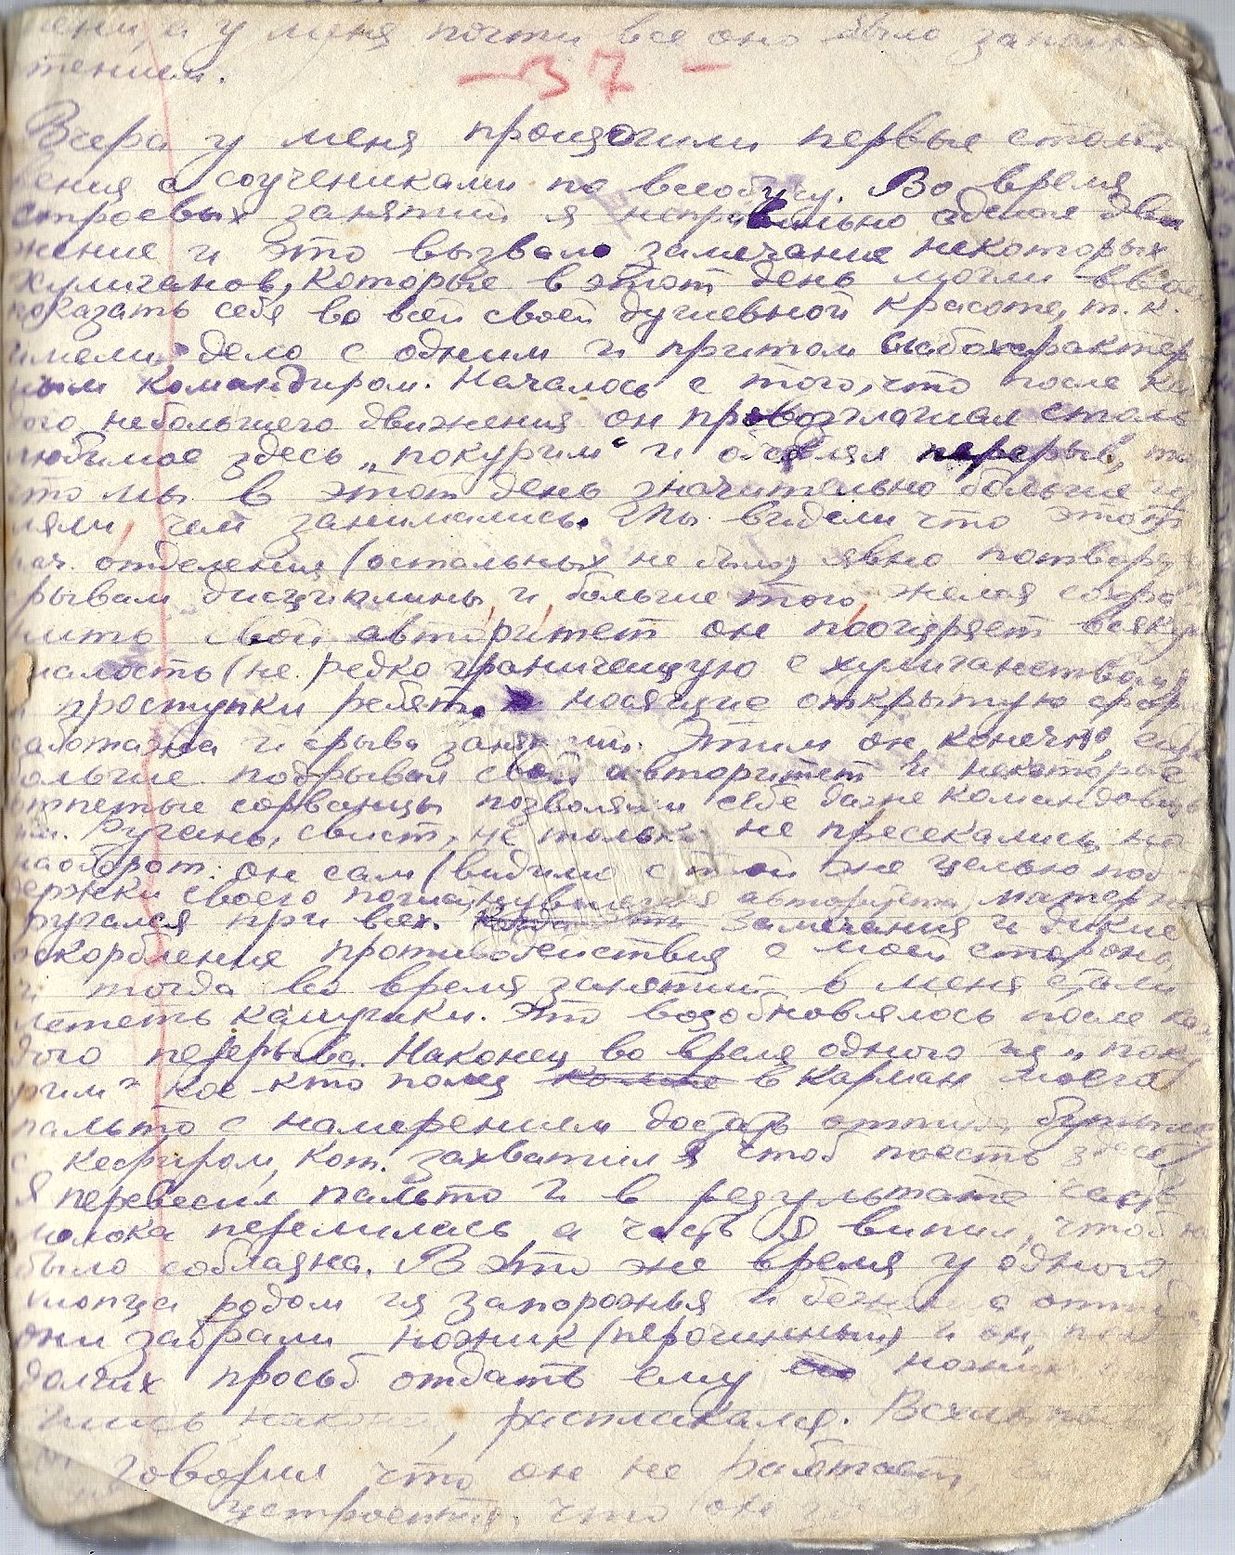 а у меня почти все оно было
тением.
— 37 —
Вчера у меня произошли первые столк
вения с соучениками по всеобучу. Во время
строевых занятий я неправильно сделал дви
жение и это вызвало замечание некоторых
хулиганов, которые в этот день могли
показать себя во всей своей душевной красоте, т. к.
имели дело с одним и притом слабохарактер
ным командиром. Началось с того, что после каж
дого небольшего движения он провозглашал столь
любимое здесь „покурим“ и объявлял перерыв, та
что мы в этот день значительно больше гу
ляли, чем занимались. Мы видели что этот
нач. отделения (остальных не было) явно потвору
рывам дисциплины, и, больше того, желая сохра
нить свой авторитет он поощряет всякую
шалость (не редко граничещую с хулиганством)
и проступки ребят, носящие открытую фор
саботажа и срыва занятий. Этим он, конечно, еще
больше подрывал свой авторитет и некоторые
отпетые сорванцы позволяли себе даже командовать
им. Ругань, свист, не только не пресекались, но
наоборот: он сам (видимо с той же целью под
держки своего авторитета) матер
ругался при всех. замечания и дикие
оскорбления противодействия с моей стороны
и тогда во время занятий в меня стали
лететь камушки. Это возобновлялось после каж
дого перерыва. Наконец, во время одного из „поку
рим“ кое кто полез в карман моего
пальто с намерением достать оттуда бутылку
с кефиром, кот. захватил я чтоб поесть здесь
Я перевесил пальто и в результате часть
молока перелилась, а часть я выпил, чтоб не
было соблазна. В это же время у одного
хлопца родом из Запорожья и
они забрали ножик (перочинный) и он, после
долгих просьб отдать ему ножик
наконец, расплакался.
говорил что он не работает,
устроится, что он